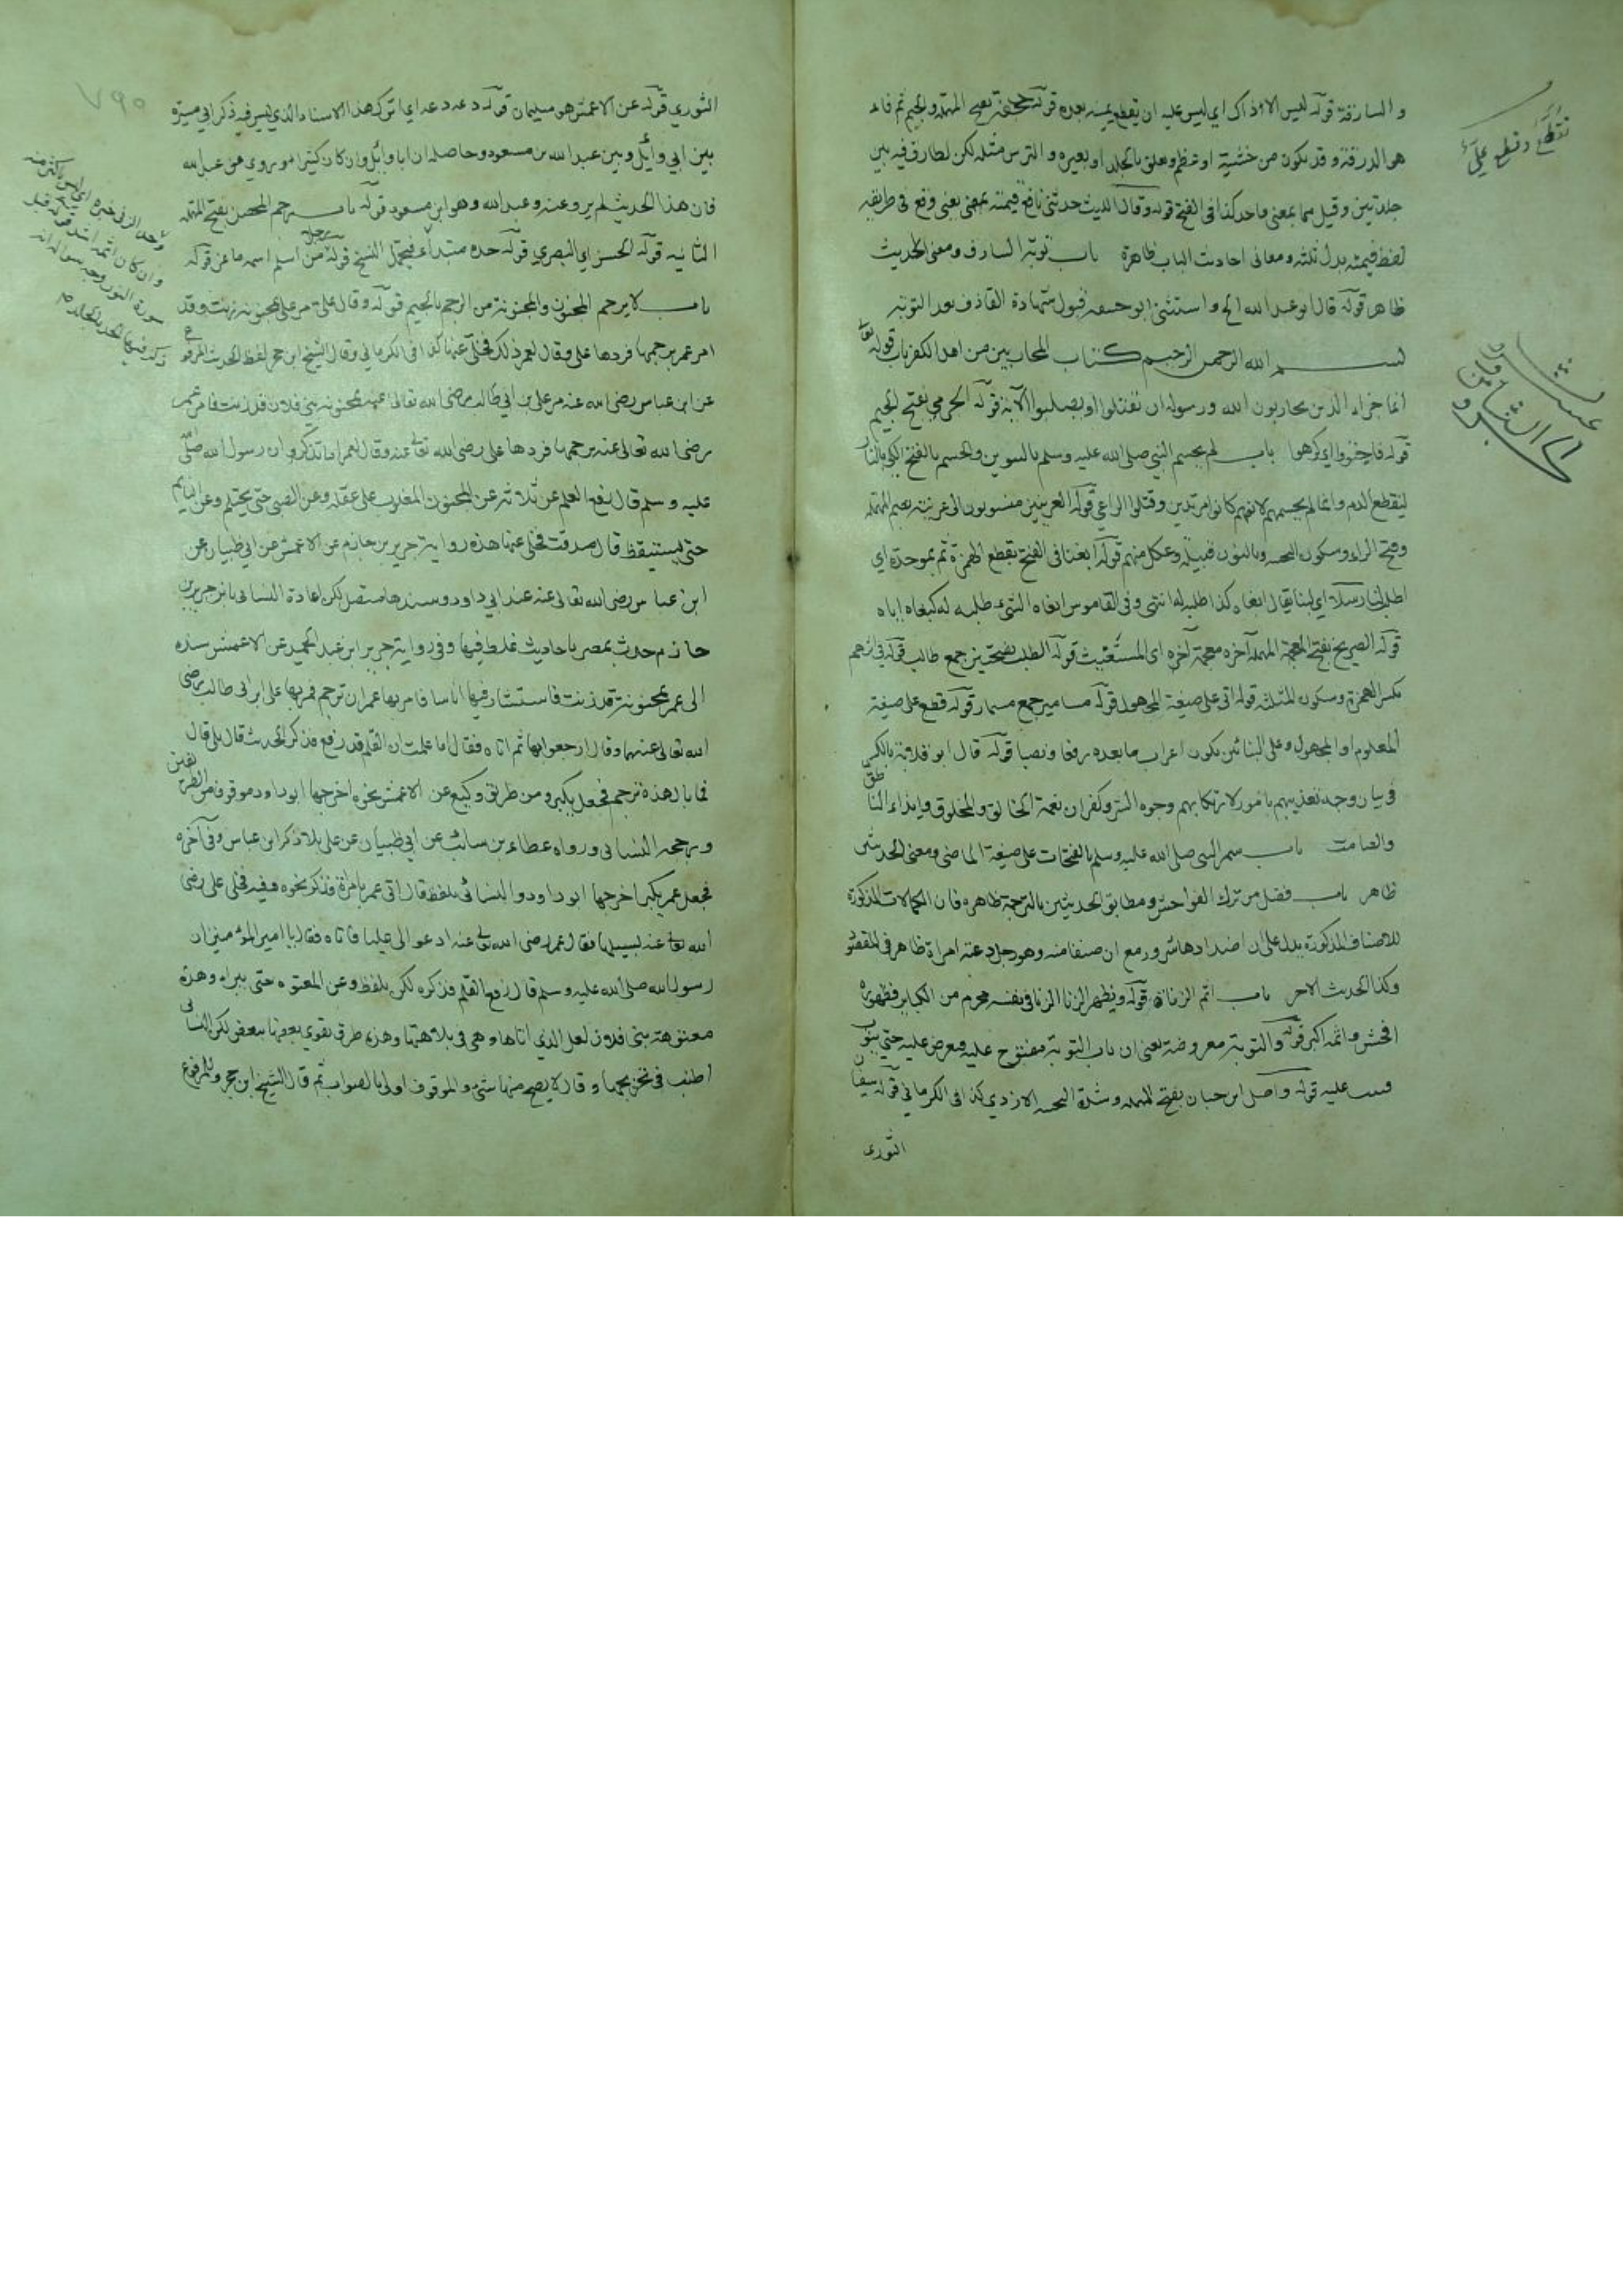 والسارقة قوله ليس الا ذاك اي ليس عليه ان يقطع يمينه بعده قوله حجفة بفتح المهملة والجيم ثم فاء
هو الدرقة وقد يكون من خشبة او عظم ويغلق بالجلد او بغيره والترس مثله لكن يطارق فيه بين
جلدتين وقيل هما بمعنى واحد كذا في الفتح قوله وقال الليث حدثني نافع قيمته بمعنى يعني وقع في طريقه
لفظ قيمته بدل ثمنه ومعاني احاديث الباب ظاهرة باب توبة السارق ومعنى الحديث
ظاهر قوله قال ابو عبد الله الخ واستثنى ابو حنيفة قبول شهادة القاذف بعد التوبة
بسم الله الرحمن الرحيم كتاب المحاربين من اهل الكفر باب قوله تعالى
انما جزاء الذين يحاربون الله ورسوله ان يقتلوا او يصلبوا الآية قوله الجرمي بفتح الجيم
قوله فاجتووا اي كرهوا باب لم يحسم النبي صلى الله عليه وسلم بالسوين والحسم بالفتح الكي بالنار
لينقطع الدم وانما لم يحسمهم لانهم كانوا مرتدين وقتلوا الراعي قوله العرنيين منسوبون الى عرينة بضم المهملة
وفتح الراء وسكون التحتية وبالنون قبيلة وعكل منهم قوله ابغنا في الفتح بقطع الهمزة ثم بموحدة اي
اطلب لنا رسلا اي لبنا يقال ابغاه كذا طلبه له انتهى وفي القاموس ابغاه الشيء طلبه له كبغاه اياه
قوله الصريخ بفتح المهملة آخره معجمة آخره اي المستغيث قوله الطلب بفتحتين جمع طالب قوله في اثرهم
بكسر الهمزة وسكون المثلثة قوله اتي على صيغة المجهول قوله مسامير جمع مسمار قوله قطع على صيغة
المعلوم او المجهول وعلى البنائين يكون اعراب ما بعده رفعا ونصبا قوله قال ابو قلابة بالكسر
في بيان وجه تعذيبهم بامور لارتكابهم وجوه الشر وكفران نعمة الخالق والمخلوق وايذاء الناطق
والصامت باب سمر النبي صلى الله عليه وسلم بالفتحات على صيغة الماضي ومعنى الحديث
ظاهر باب فضل من ترك الفواحش ومطابق الحديثين بالترجمة ظاهره فان الكمالات المذكورة
للاصناف المذكورة يدل على ان اضدادها شر ورمع ان صنفا منه وهو رجل دعته امراة ظاهر في المقصود
وكذا الحديث الاخر باب اثم الزناة قوله ويظهر الزنا الزنا في نفسه محرم من الكبائر فظهوره
افحش واثمه اكبر قوله والتوبة معروضة يعني ان باب التوبة مفتوح عليه ويعرض عليه حتى يتوب
عليه قوله واصل ابن حبان بفتح المهملة وشدة التحتية الازدي كذا في الكرماني قوله سفيان
الثوري
تقطع وقطع علي
الثوري قوله عن الاعمش هو سليمان قوله دعه دعه اي اترك هذا الاسناد الذي ليس فيه ذكر ابي ميسرة
بين ابي وائل وبين عبد الله بن مسعود وحاصله ان ابا وائل وان كان كثيرا ما يروي عن عبد الله
فان هذا الحديث لم يرو عنه وعبد الله وهو ابن مسعود قوله باب رجم المحصن بفتح المهملة
الثانية قوله الحسن اي البصري قوله حده مبتدأ فيحتمل النسخ قوله رجل من اسلم اسمه ماعز قوله
باب لا يرجم المجنون والمجنونة من الرجم بالجيم قوله وقال علي مر علي بمجنونة زنت وقد
امر عمر برجمها فردها علي وقال لعمر ذلك فخلى عنها كذا في الكرماني وقال الشيخ ابن حجر لفظ الحديث المرفوع
عن ابن عباس رضي الله عنه مر علي بن ابي طالب رضي الله تعالى عنه بمجنونة بني فلان قد زنت فامر عمر
رضي الله تعالى عنه برجمها فردها علي رضي الله تعالى عنه وقال لعمر اما تذكر ان رسول الله صلى الله
عليه وسلم قال رفع القلم عن ثلاثة عن المجنون المغلوب على عقله وعن الصبي حتى يحتلم وعن النائم
حتى يستيقظ قال صدقت فخلى عنها هذه رواية جرير بن حازم عن الاعمش عن ابي ظبيان عن
ابن عباس رضي الله تعالى عنه عند ابي داود وسندها متصل لكن اعاده النسائي بان جرير بن
حازم حدث بمصر باحاديث غلط فيها وفي رواية جرير ابن عبد الحميد عن الاعمش بسنده
الى عمر بمجنونة قد زنت فاستشار فيها اناسا فامر بها عمر ان ترجم فمر بها علي ابن ابي طالب رضي
الله تعالى عنهما وقال ارجعوا بها ثم اتاه فقال اما علمت ان القلم قد رفع فذكر الحديث قال بلى قال
فما بال هذه ترجم فجعل يكبر ومن طريق وكيع عن الاعمش نحوه اخرجها ابو داود موقوفا من الطريقين
ورجحه النسائي ورواه عطاء بن سائب عن ابي ظبيان عن علي بلا ذكر ابن عباس وفي آخره
فجعل عمر يكبر اخرجها ابو داود والنسائي بلفظ قال اتي عمر بامراة فذكر نحوه وفيه فخلى علي رضي
الله تعالى عنه سبيلها فقال عمر رضي الله تعالى عنه ادعوا لي عليا فاتاه فقال يا امير المؤمنين ان
رسول الله صلى الله عليه وسلم قال رفع القلم فذكره لكن بلفظ وعن المعتوه حتى يبراء وهذه
معتوهة بني فلان لعل الذي اتاها وهي في بلائها وهذه طرق يقوي بعضها ببعض لكن النسائي
اطنب في تخريجها وقال لا يصح منها شيء والموقوف اولى بالصواب ثم قال الشيخ ابن حجر وللمرفوع
وان كان اثمه اشد قوله قبل
سورة النور وجه سؤاله انه
٧٩٥